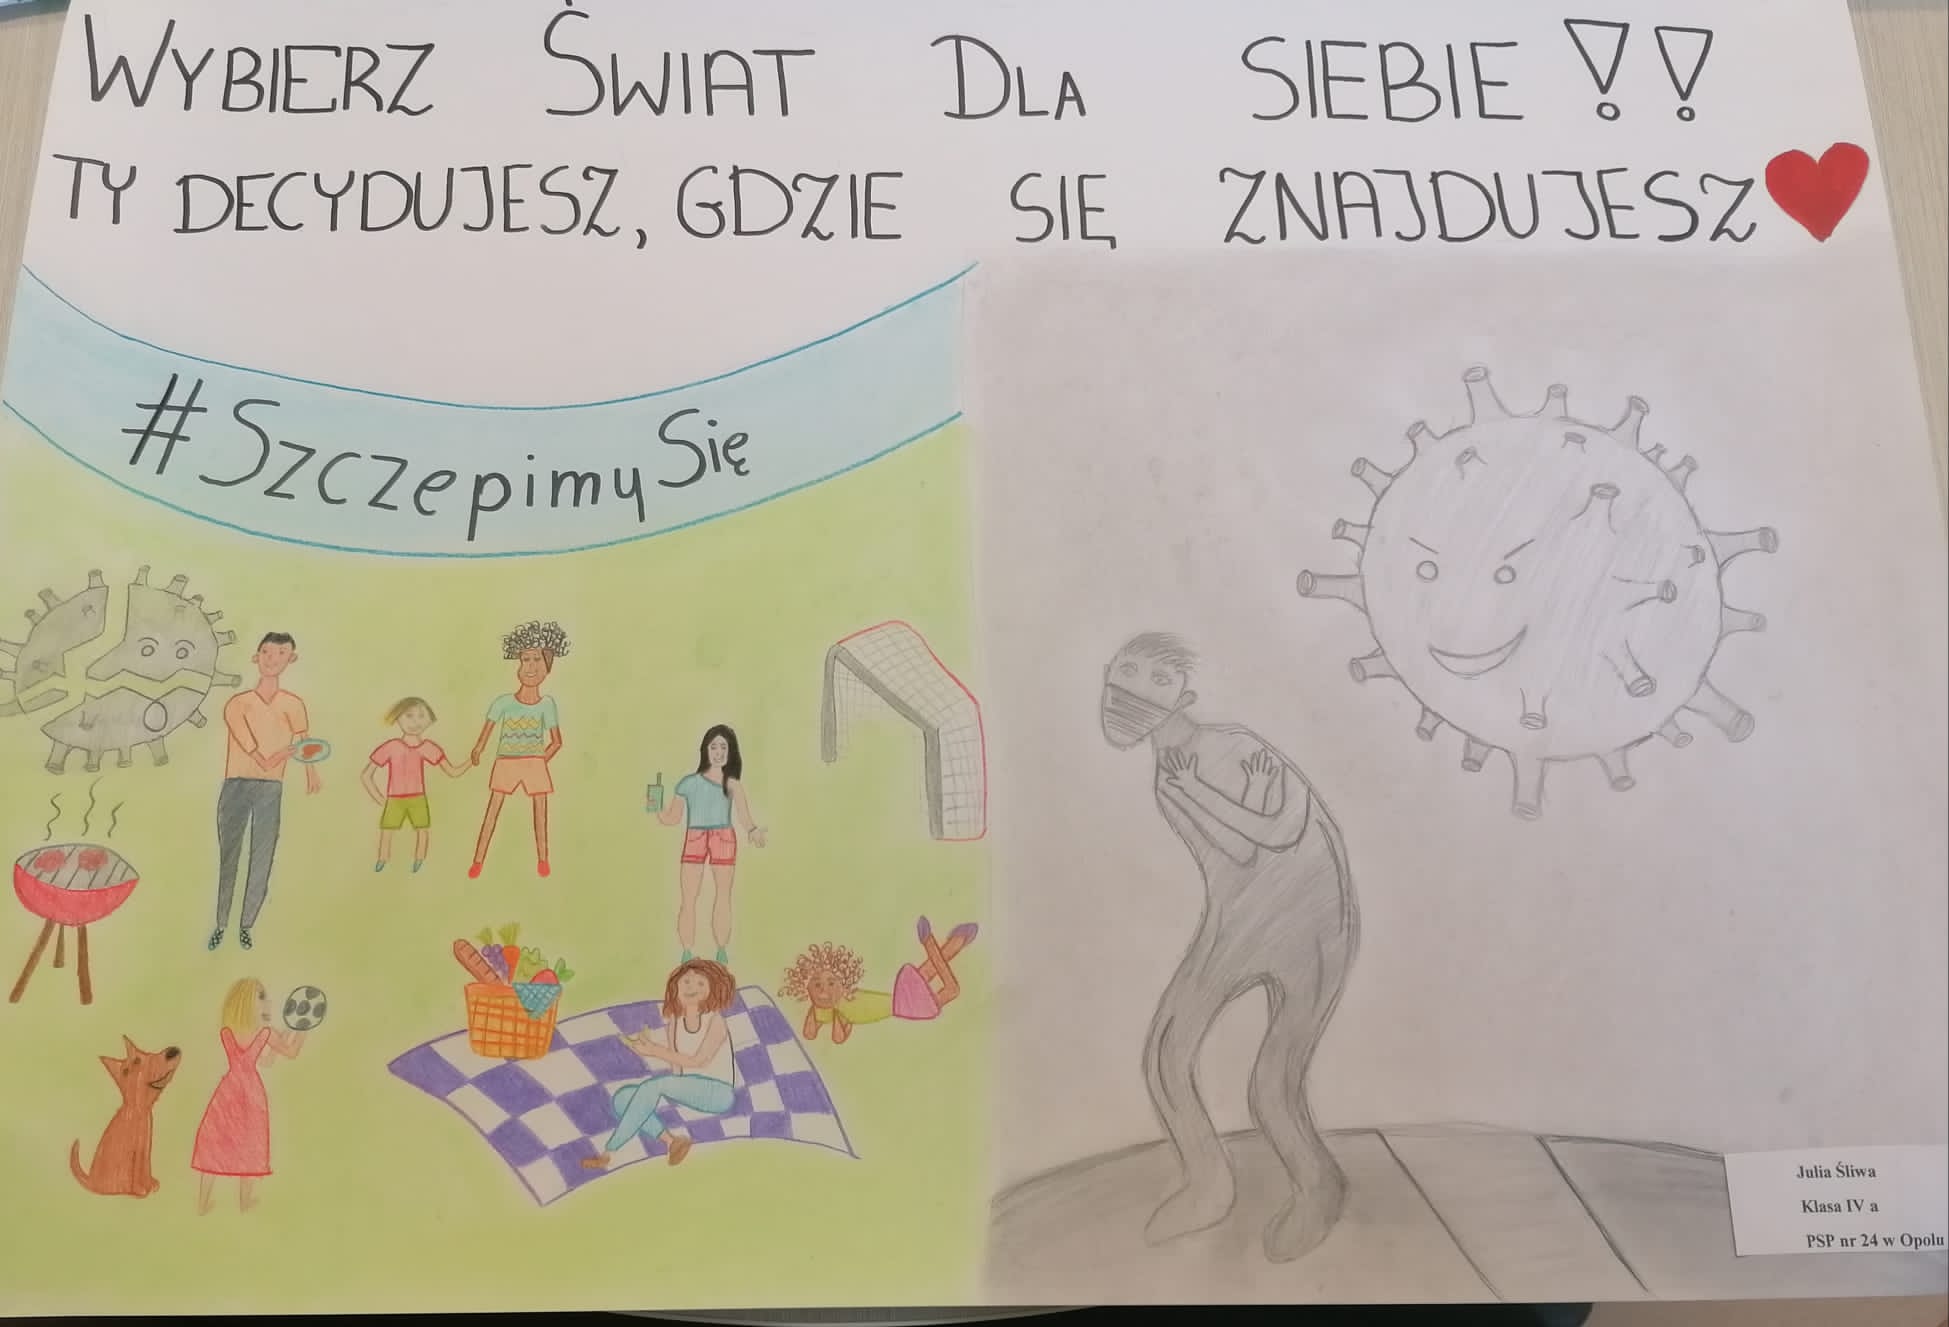 WYBIERZ ŚWIAT DLA SIEBIE !!
TY DECYDUJESZ, GDZIE SIĘ ZNAJDUJESZ
#SzczepimySię
Julia Śliwa
Klasa IV a
PSP nr 24 w Opolu